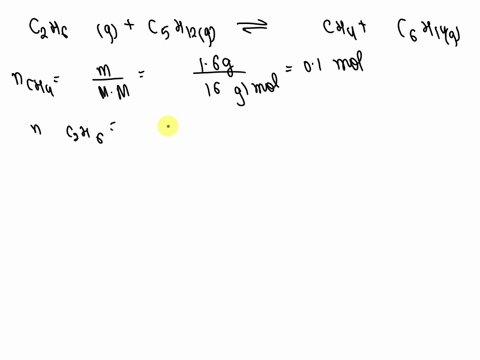 C2H6 (g) + C5H12(g) ⇌ CH4 + C6H14(g)
nCH4 = m/M.M = 1.6g/16 g/mol = 0.1 mol
n C2H6 =